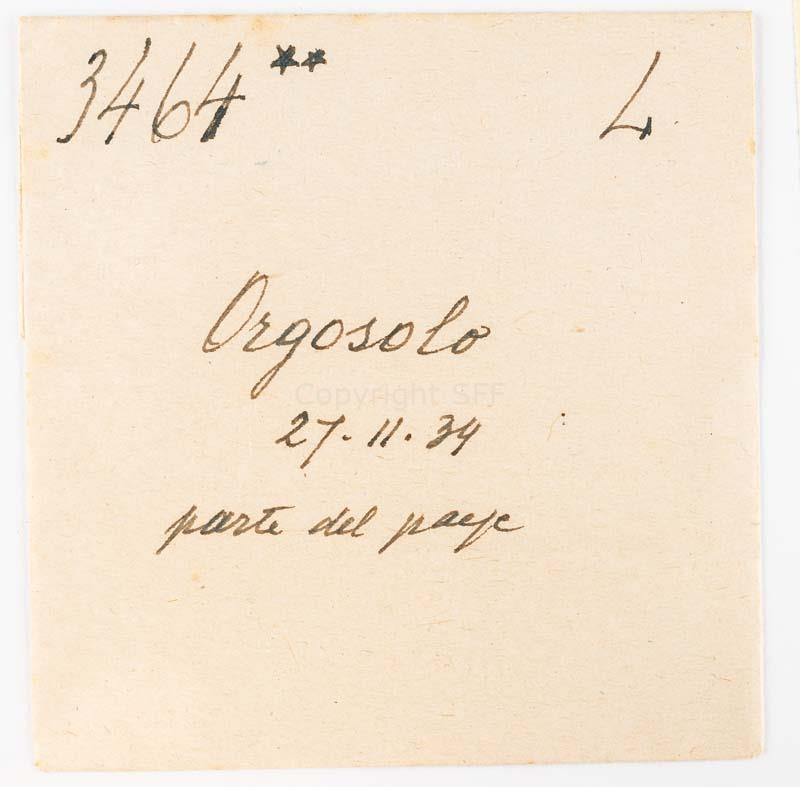 3464** L
Orgosolo
Copyright SFF
27-11-34
parte del paeje